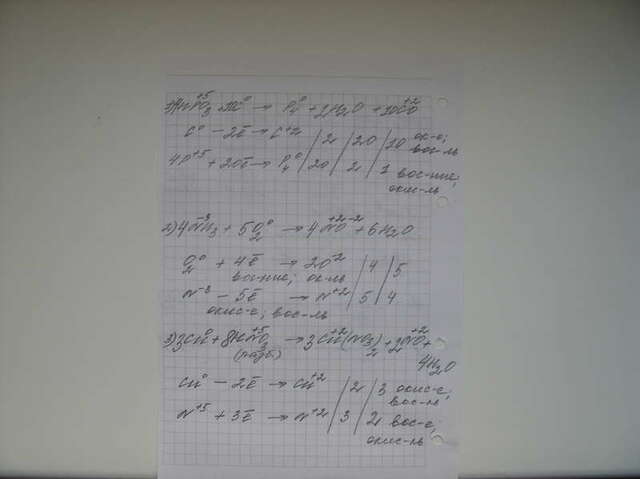 1) 4HPO₃⁺⁵ + 10C⁰ → P₄⁰ + 2H₂O + 10CO⁺²
C⁰ – 2ē → C⁺² | 2 | 20 | 10 ок-е; вос-ль
4P⁺⁵ + 20ē → P₄⁰ | 20 | 2 | 1 вос-ние; окис-ль
2) 4N⁻³H₃ + 5O₂⁰ → 4N⁺²O⁻² + 6H₂O
O₂⁰ + 4ē → 2O⁻² | 4 | 5
вос-ние; ок-ль
N⁻³ – 5ē → N⁺² | 5 | 4
окис-е; вос-ль
3) 3Cu⁰ + 8HN⁺⁵O₃ → 3Cu⁺²(NO₃)₂ + 2N⁺²O +
(разб) 4H₂O
Cu⁰ – 2ē → Cu⁺² | 2 | 3 окис-е; вос-ль
N⁺⁵ + 3ē → N⁺² | 3 | 2 вос-е; окис-ль